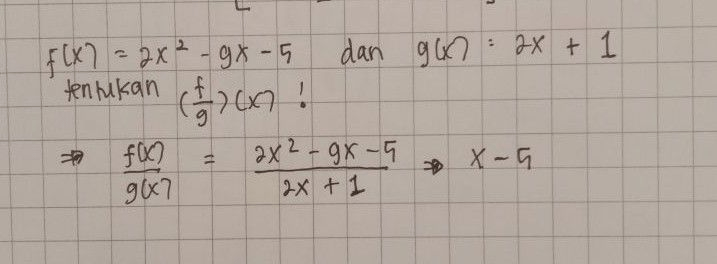 f(x) = 2x² - 9x - 5 dan g(x) = 2x + 1
tentukan (f/g)(x) !
⇒ f(x)/g(x) = (2x² - 9x - 5)/(2x + 1) ⇒ x - 5